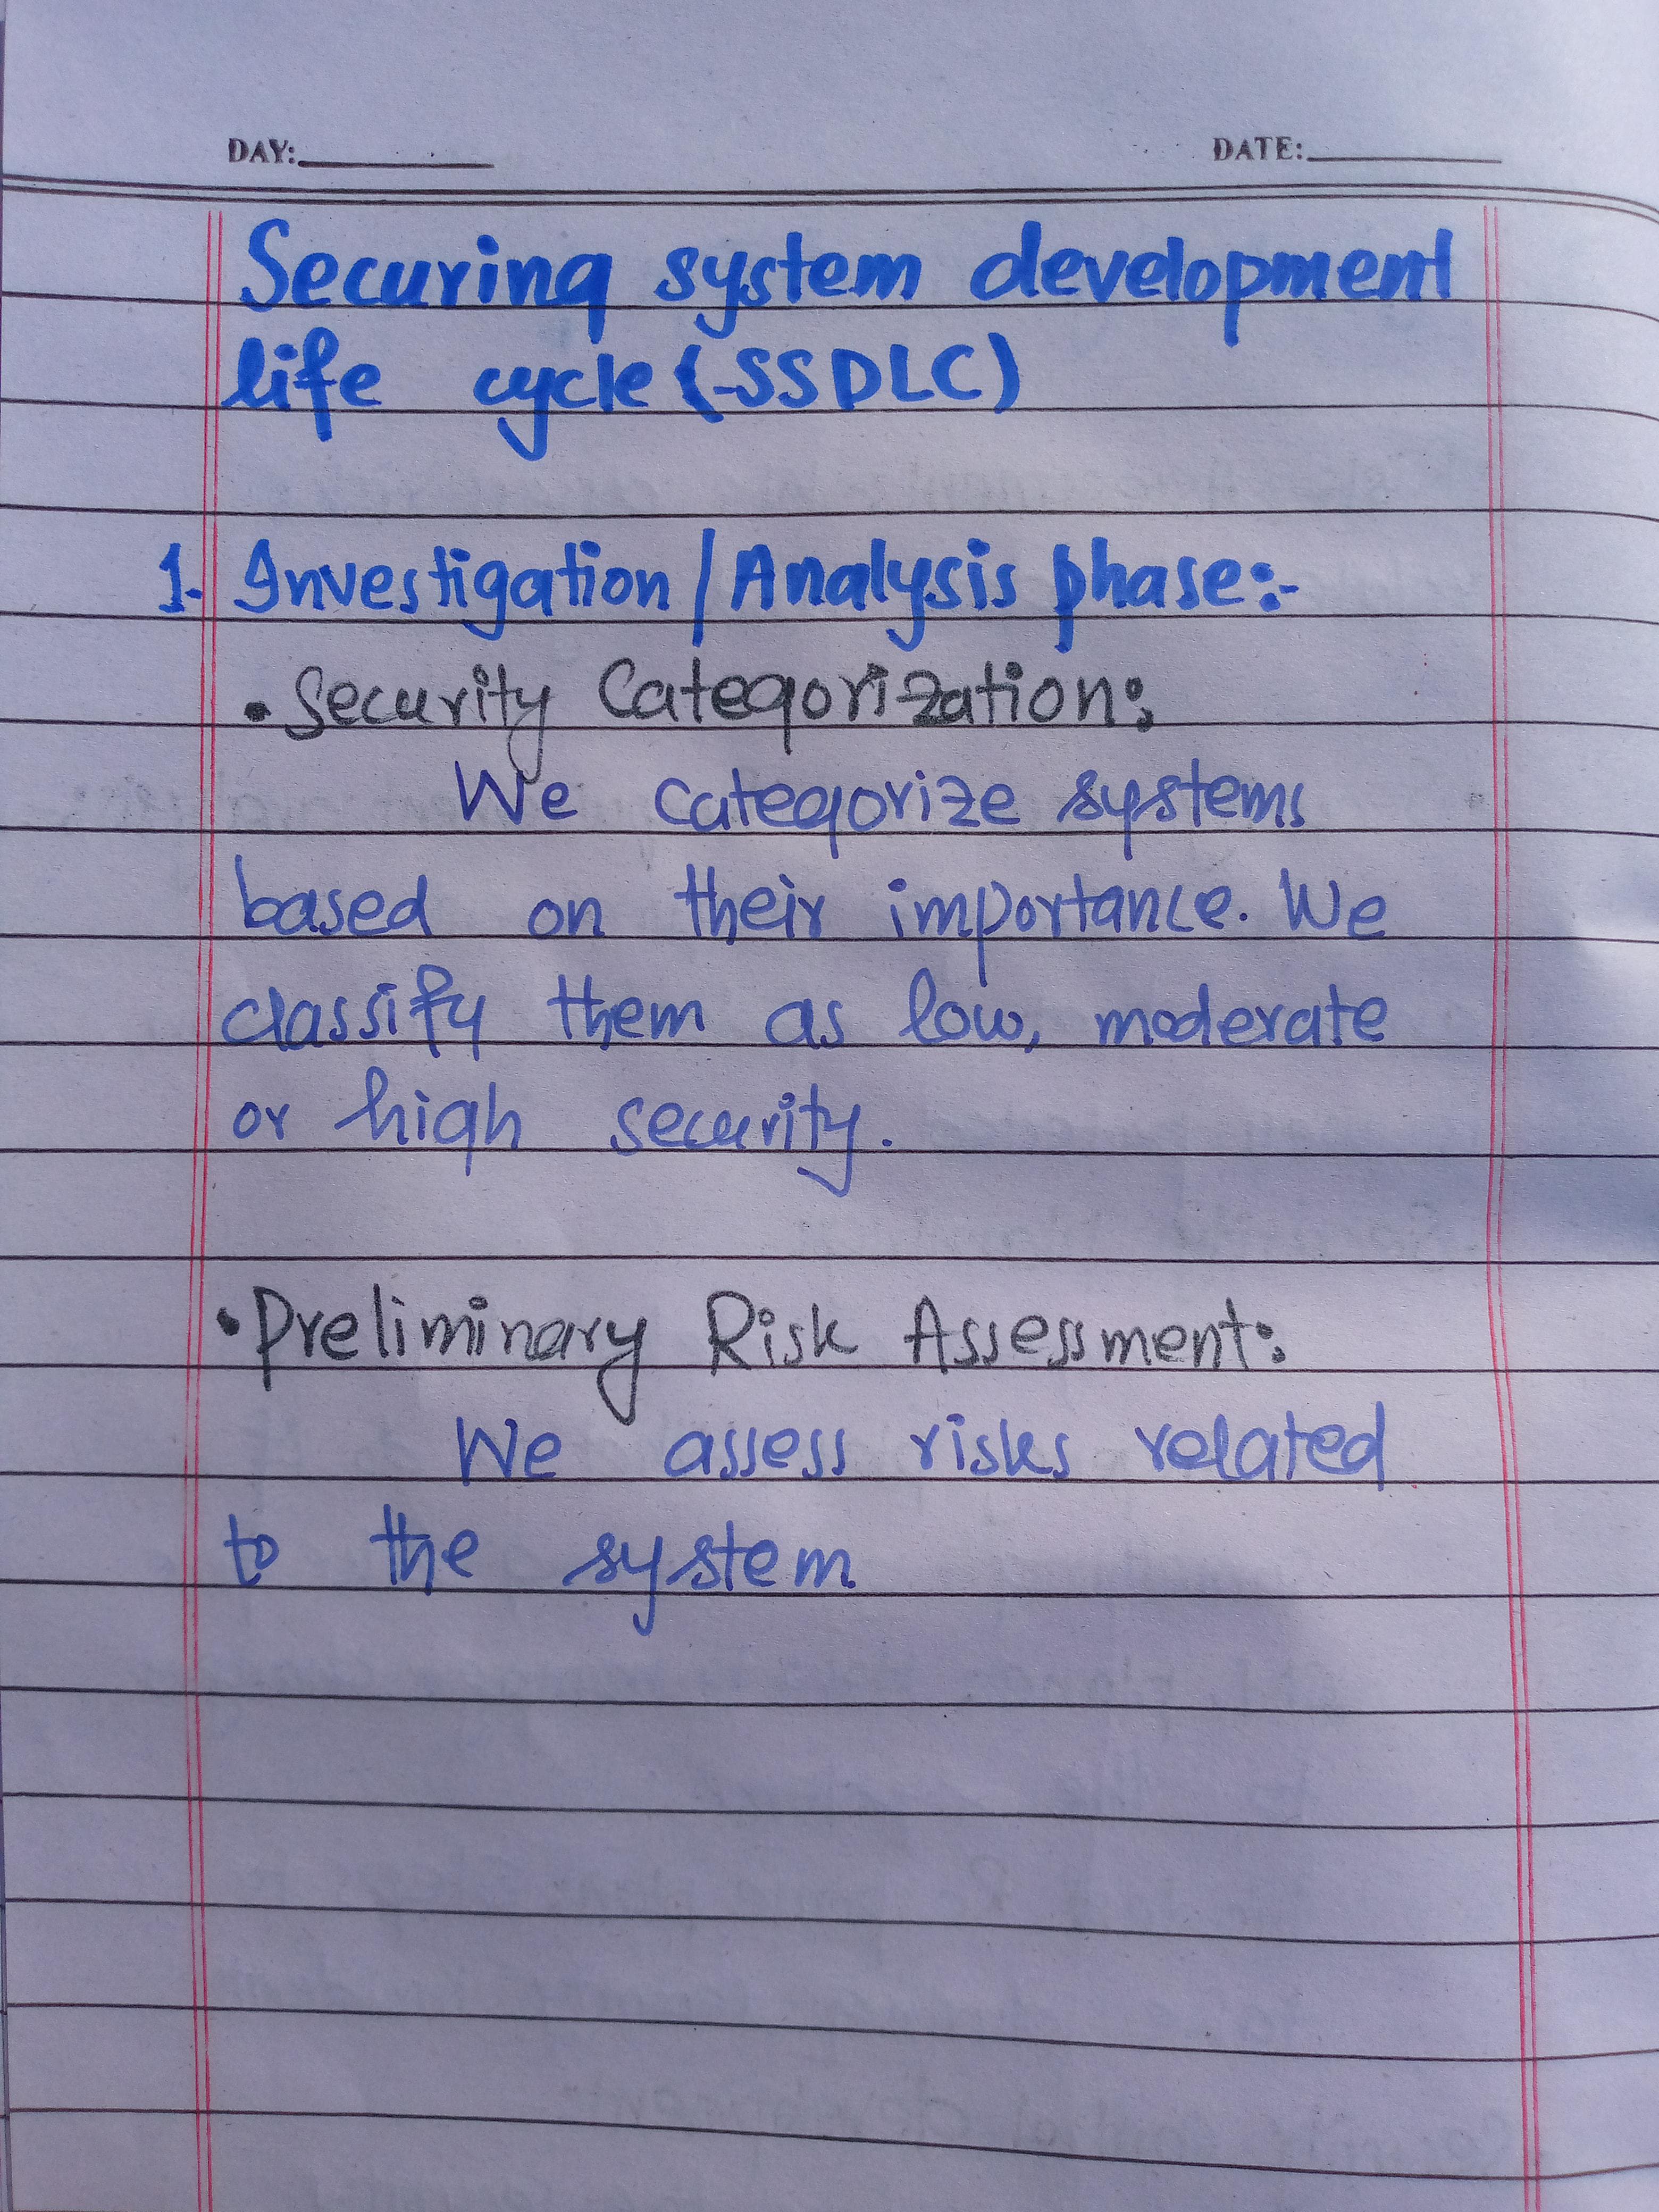 DAY:
DATE:
Securing system development
life cycle (-SSDLC)
1. Investigation / Analysis phase:-
• Security Categorization:
We categorize systems
based on their importance. We
classify them as low, moderate
or high security.
• Preliminary Risk Assessment:
We assess risks related
to the system